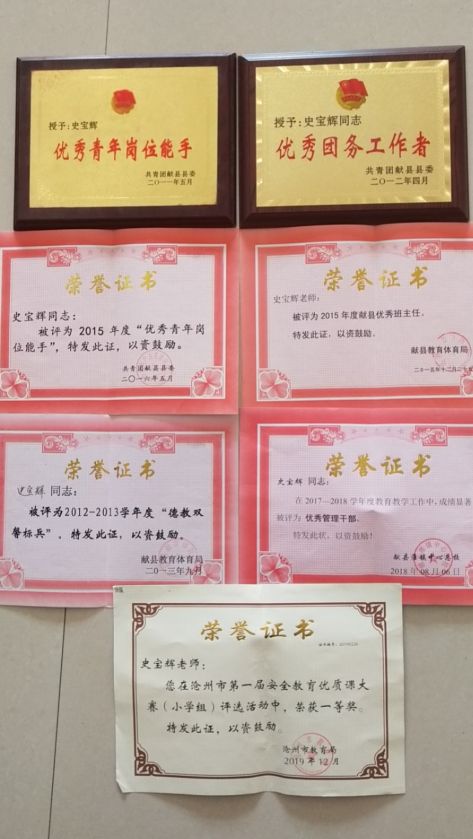 授予:史宝辉
优秀青年岗位能手
共青团献县县委
二〇一一年五月
授予:史宝辉同志
优秀团务工作者
共青团献县县委
二〇一二年四月
荣誉证书
史宝辉同志:
被评为 2015 年度“优秀青年岗
位能手”,特发此证,以资鼓励。
共青团献县县委
二〇一六年五月
荣誉证书
史宝辉老师:
被评为 2015 年度献县优秀班主任。
特发此证,以资鼓励。
献县教育体育局
二〇一五年十二月二十五
荣誉证书
史宝辉 同志:
被评为2012-2013学年度“德教双
馨标兵”。特发此证,以资鼓励。
献县教育体育局
二〇一三年九月
荣誉证书
史宝辉 同志:
在 2017—2018 学年度教育教学工作中,成绩显著
被评为 优秀管理干部。
特发此状,以资鼓励!
献县 镇中心总校
2018 年 08 月 06 日
荣誉证书
史宝辉老师:
您在沧州市第一届安全教育优质课大
赛(小学组)评选活动中,荣获一等奖。
特发此证,以资鼓励。
沧州市教育局
2019 年 12 月